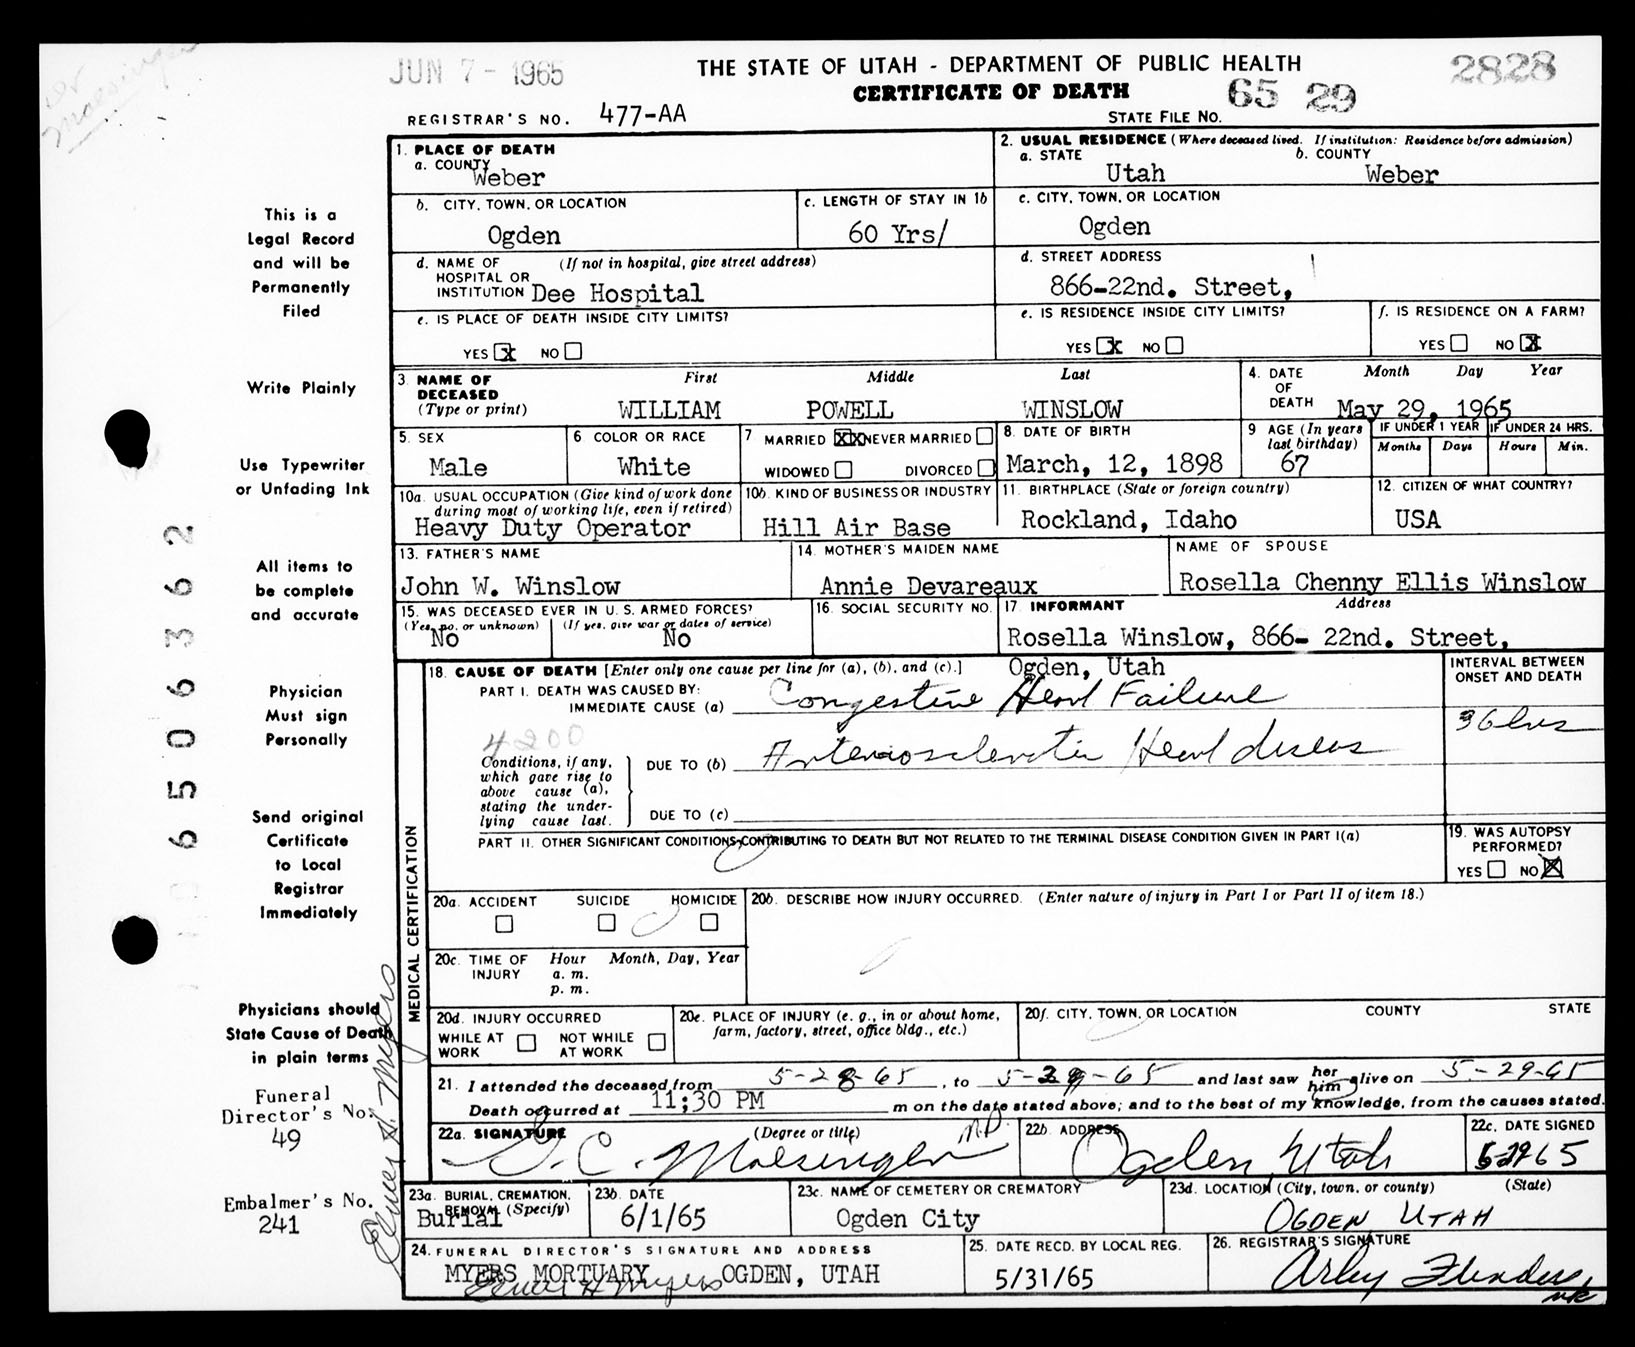 JUN 7 - 1965
THE STATE OF UTAH - DEPARTMENT OF PUBLIC HEALTH
2828
CERTIFICATE OF DEATH
65 29
REGISTRAR'S NO. 477-AA
STATE FILE NO.
This is a
Legal Record
and will be
Permanently
Filed
Write Plainly
Use Typewriter
or Unfading Ink
All items to
be complete
and accurate
Physician
Must sign
Personally
Send original
Certificate
to Local
Registrar
Immediately
Physicians should
State Cause of Death
in plain terms
Funeral
Director's No.
49
Embalmer's No.
241
6506362
Elmer H. Myers
1. PLACE OF DEATH
a. COUNTY
Weber
2. USUAL RESIDENCE (Where deceased lived. If institution: Residence before admission)
a. STATE b. COUNTY
Utah Weber
b. CITY, TOWN, OR LOCATION
Ogden
c. LENGTH OF STAY IN 1b
60 Yrs/
c. CITY, TOWN, OR LOCATION
Ogden
d. NAME OF (If not in hospital, give street address)
HOSPITAL OR
INSTITUTION Dee Hospital
d. STREET ADDRESS
866-22nd. Street,
e. IS PLACE OF DEATH INSIDE CITY LIMITS?
YES X NO
e. IS RESIDENCE INSIDE CITY LIMITS?
YES X NO
f. IS RESIDENCE ON A FARM?
YES NO X
3. NAME OF DECEASED (Type or print)
First Middle Last
WILLIAM POWELL WINSLOW
4. DATE OF DEATH
Month Day Year
May 29, 1965
5. SEX
Male
6 COLOR OR RACE
White
7 MARRIED XX NEVER MARRIED
WIDOWED DIVORCED
8. DATE OF BIRTH
March, 12, 1898
9 AGE (In years last birthday)
67
IF UNDER 1 YEAR IF UNDER 24 HRS.
Months Days Hours Min.
10a. USUAL OCCUPATION (Give kind of work done
during most of working life, even if retired)
Heavy Duty Operator
10b. KIND OF BUSINESS OR INDUSTRY
Hill Air Base
11. BIRTHPLACE (State or foreign country)
Rockland, Idaho
12. CITIZEN OF WHAT COUNTRY?
USA
13. FATHER'S NAME
John W. Winslow
14. MOTHER'S MAIDEN NAME
Annie Devareaux
NAME OF SPOUSE
Rosella Chenny Ellis Winslow
15. WAS DECEASED EVER IN U. S. ARMED FORCES?
(Yes, no. or unknown) (If yes, give war or dates of service)
No No
16. SOCIAL SECURITY NO.
17. INFORMANT Address
Rosella Winslow, 866- 22nd. Street,
Ogden, Utah
MEDICAL CERTIFICATION
18. CAUSE OF DEATH [Enter only one cause per line for (a), (b), and (c).]
INTERVAL BETWEEN
ONSET AND DEATH
PART I. DEATH WAS CAUSED BY:
IMMEDIATE CAUSE (a) Congestive Heart Failure
36 hrs
4200
Conditions, if any,
which gave rise to
above cause (a),
stating the under-
lying cause last.
DUE TO (b) Arteriosclerotic Heart disease
DUE TO (c)
PART II. OTHER SIGNIFICANT CONDITIONS CONTRIBUTING TO DEATH BUT NOT RELATED TO THE TERMINAL DISEASE CONDITION GIVEN IN PART I(a)
19. WAS AUTOPSY
PERFORMED?
YES NO X
20a. ACCIDENT SUICIDE HOMICIDE
20b. DESCRIBE HOW INJURY OCCURRED. (Enter nature of injury in Part I or Part II of item 18.)
20c. TIME OF INJURY
Hour Month, Day, Year
a. m.
p. m.
20d. INJURY OCCURRED
WHILE AT WORK NOT WHILE AT WORK
20e. PLACE OF INJURY (e. g., in or about home,
farm, factory, street, office bldg., etc.)
20f. CITY, TOWN, OR LOCATION COUNTY STATE
21. I attended the deceased from 5-28-65, to 5-29-65 and last saw her him alive on 5-29-65
Death occurred at 11;30 PM m on the date stated above; and to the best of my knowledge, from the causes stated.
22a. SIGNATURE (Degree or title)
M.D.
22b. ADDRESS
Ogden Utah
22c. DATE SIGNED
5-29-65
23a. BURIAL, CREMATION,
REMOVAL (Specify)
Burial
23b. DATE
6/1/65
23c. NAME OF CEMETERY OR CREMATORY
Ogden City
23d. LOCATION (City, town, or county) (State)
OGDEN, UTAH
24. FUNERAL DIRECTOR'S SIGNATURE AND ADDRESS
MYERS MORTUARY OGDEN, UTAH
Elmer H Myers
25. DATE RECD. BY LOCAL REG.
5/31/65
26. REGISTRAR'S SIGNATURE